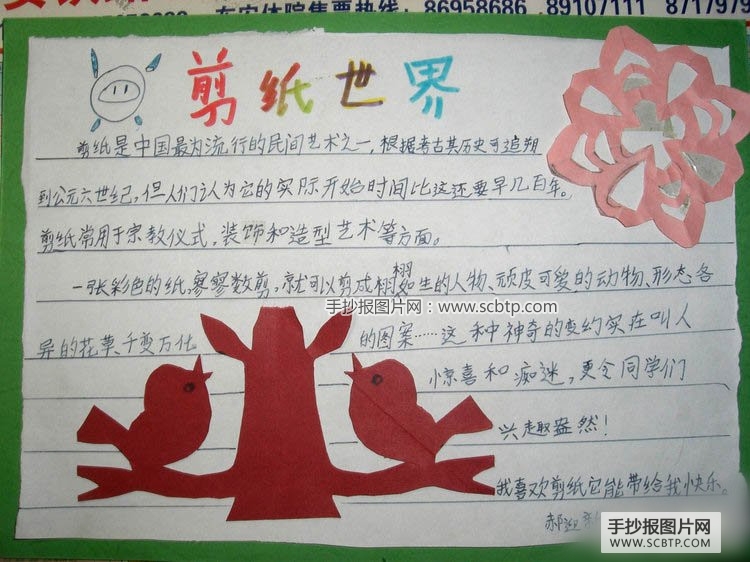 东安体院售票热线：86958686 , 89107111 8717979
剪纸世界
剪纸是中国最为流行的民间艺术之一，根据考古其历史可追朔
到公元六世纪，但人们认为它的实际开始时间比这还要早几百年。
剪纸常用于宗教仪式，装饰和造型艺术等方面。
一张彩色的纸，寥寥数剪，就可以剪成栩如生的人物、顽皮可爱的动物、形态各
栩
手抄报图片网：www.scbtp.com
异的花草、千变万化的图案……这种神奇的变幻实在叫人
惊喜和痴迷，更令同学们
兴趣盎然！
我喜欢剪纸它能带给我快乐。
郝
手抄报图片网
WWW.SCBTP.COM